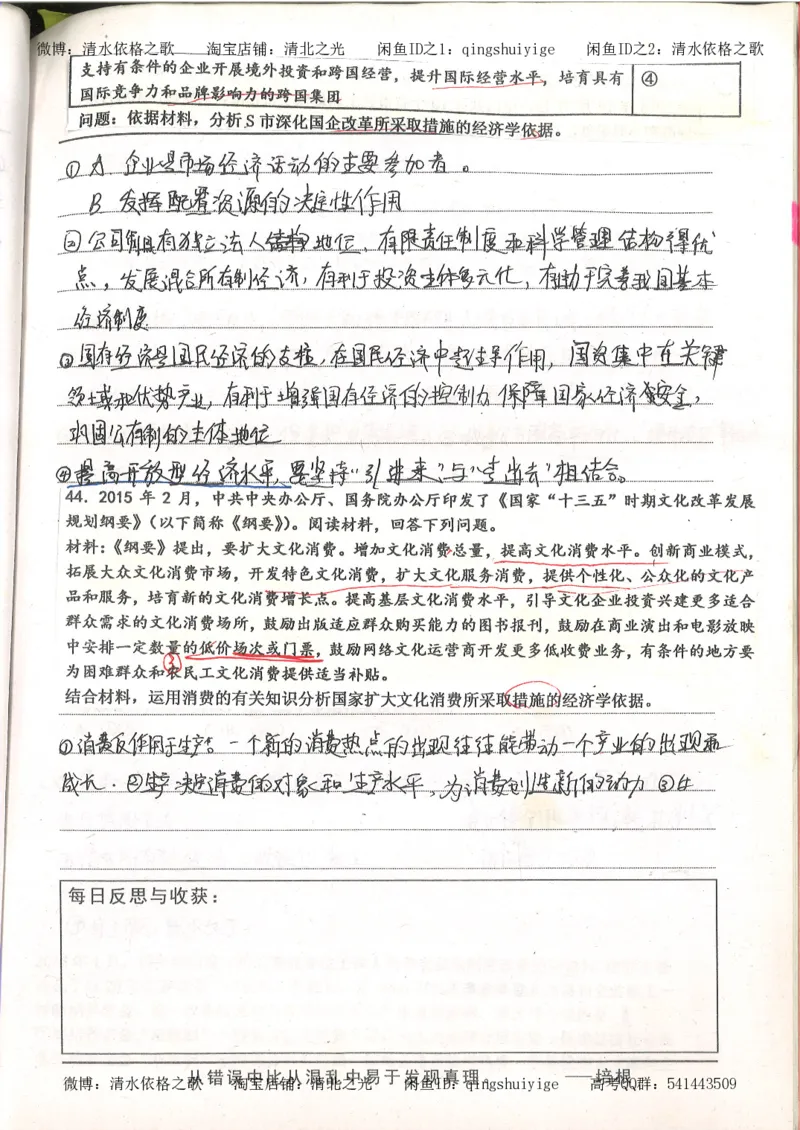 微博：清水依格之歌 淘宝店铺：清北之光 闲鱼ID之1：qingshuiyige 闲鱼ID之2：清水依格之歌
支持有条件的企业开展境外投资和跨国经营，提升国际经营水平，培育具有 ④
国际竞争力和品牌影响力的跨国集团
问题：依据材料，分析S市深化国企改革所采取措施的经济学依据。
① A 企业是市场经济活动的主要参加者。
B 发挥配置资源的决定性作用
②公司制具有独立法人地位、有限责任制度和科学管理结构得优
点，发展混合所有制经济，有利于投资主体多元化，有助于完善我国基本
经济制度
③国有经济是国民经济的支柱，在国民经济中起主导作用，国资集中在关键
领域和优势产业，有利于增强国有经济的控制力 保障国家经济安全，
巩固公有制的主体地位
④提高开放型经济水平，要坚持“引进来”与“走出去”相结合。
44．2015 年 2 月，中共中央办公厅、国务院办公厅印发了《国家“十三五”时期文化改革发展
规划纲要》（以下简称《纲要》）。阅读材料，回答下列问题。
材料：《纲要》提出，要扩大文化消费。增加文化消费总量，提高文化消费水平。创新商业模式，
拓展大众文化消费市场，开发特色文化消费，扩大文化服务消费，提供个性化、公众化的文化产
品和服务，培育新的文化消费增长点。提高基层文化消费水平，引导文化企业投资兴建更多适合
群众需求的文化消费场所，鼓励出版适应群众购买能力的图书报刊，鼓励在商业演出和电影放映
中安排一定数量的低价场次或门票，鼓励网络文化运营商开发更多低收费业务，有条件的地方要
③
为困难群众和农民工文化消费提供适当补贴。
结合材料，运用消费的有关知识分析国家扩大文化消费所采取措施的经济学依据。
①消费反作用于生产 一个新的消费热点的出现往往能带动一个产业的出现和
成长．②生产决定消费的对象和生产水平，为消费创造新的动力 ③生
每日反思与收获：
从错误中比从混乱中易于发现真理。 ——培根
微博：清水依格之歌 淘宝店铺：清北之光 闲鱼ID之1：qingshuiyige 高考QQ群：541443509